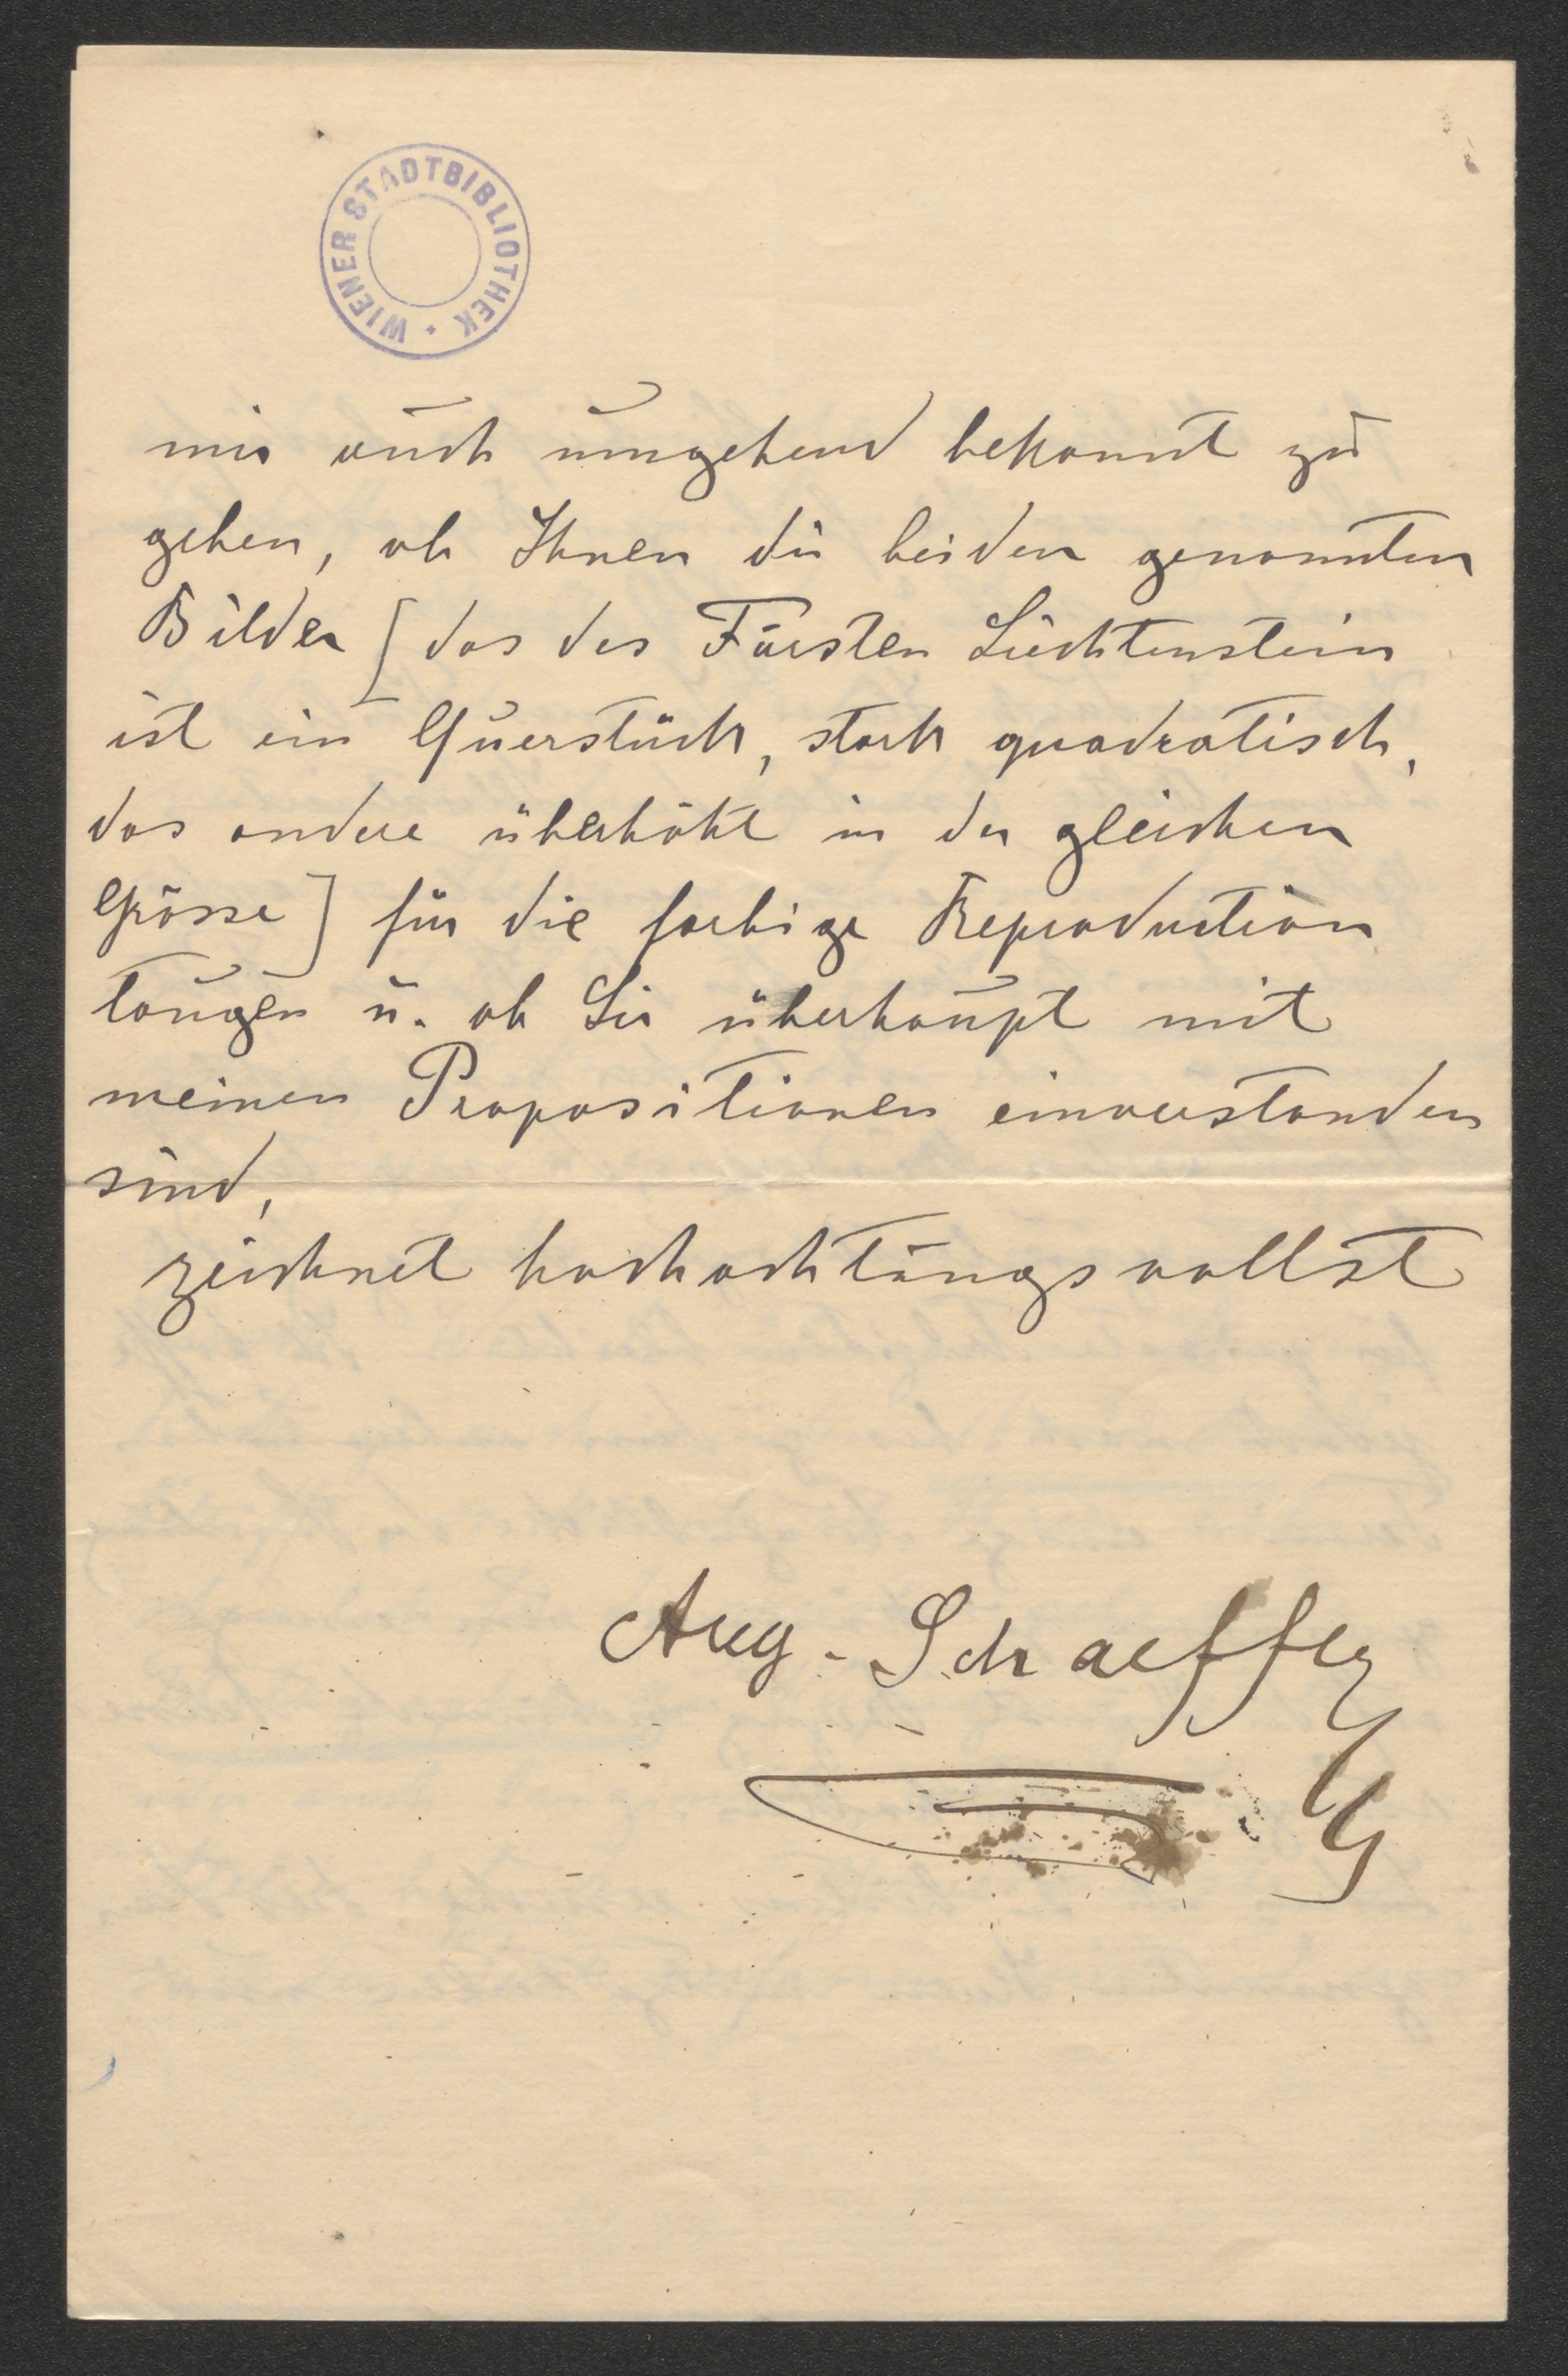 WIENER STADTBIBLIOTHEK
mir auch umgehend bekannt zu
geben, ob Ihnen die beiden genannten
Bilder [das des Fürsten Liechtenstein
ist ein Querstück, stark quadratisch,
das andere überhöht in der gleichen
Grösse] für die farbige Reproduction
taugen u. ob Sie überhaupt mit
meinen Propositionen einverstanden
sind,
zeichnet hochachtungsvollst
Aug. Schaeffer